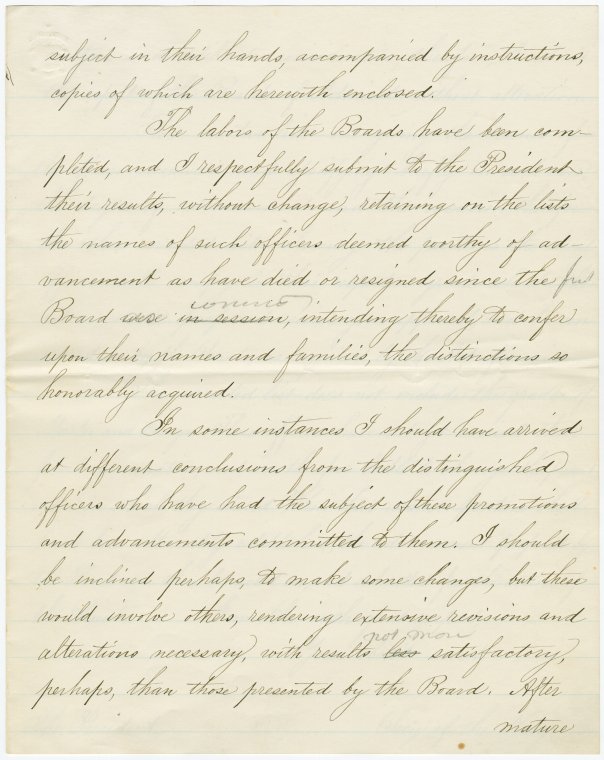 subject in their hands, accompanied by instructions,
copies of which are herewith enclosed.
The labors of the Boards have been com-
pleted, and I respectfully submit to the President
their results, without change, retaining on the lists
the names of such officers deemed worthy of ad-
vancement as have died or resigned since the first
convened
Board were in session, intending thereby to confer
upon their names and families, the distinctions so
honorably acquired.
In some instances I should have arrived
at different conclusions from the distinguished
officers who have had the subject of these promotions
and advancements committed to them. I should
be inclined perhaps, to make some changes, but these
would involve others, rendering extensive revisions and
not more
alterations necessary, with results less satisfactory,
perhaps, than those presented by the Board. After
mature